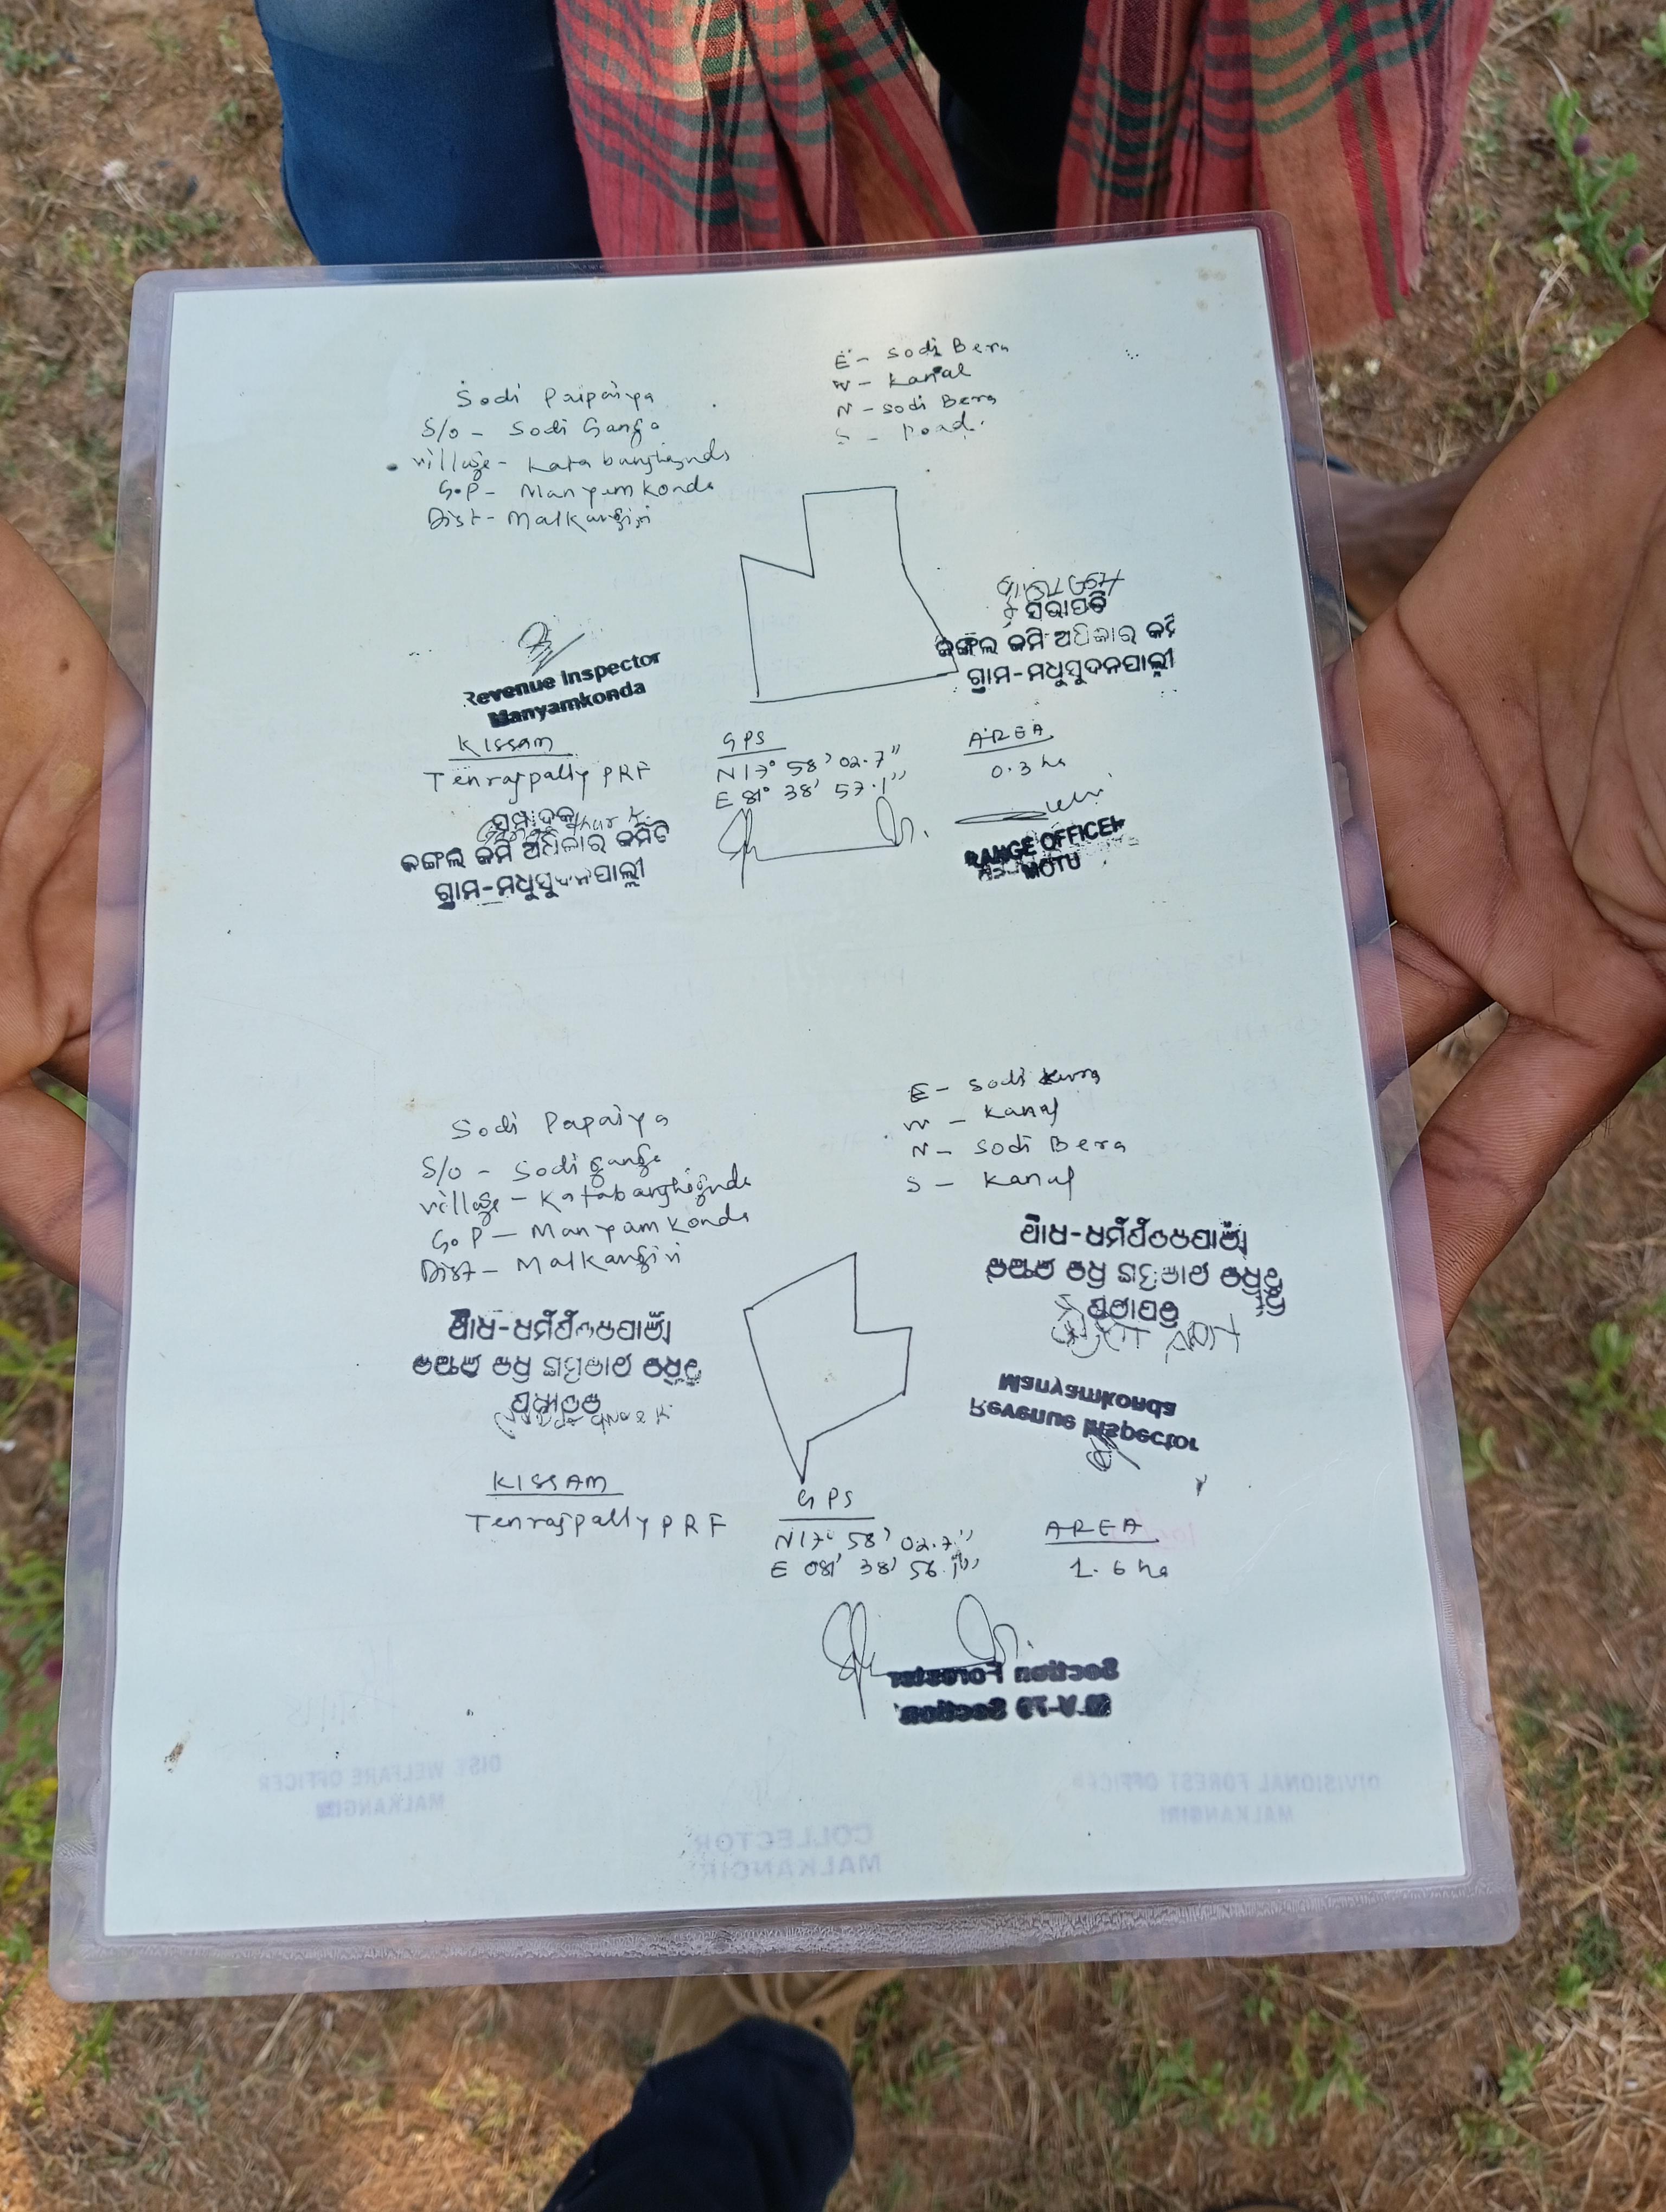 Sodi Paipaiya
S/o - Sodi Ganga
village - Katabanghagnda
G.P - Manyamkonda
Dist - Malkangiri
E - Sodi Bera
W - Kanal
N - Sodi Bera
S - Road.
Revenue Inspector
Manyamkonda
ସଭାପତି
ଜଙ୍ଗଲ ଜମି ଅଧିକାର କମି
ଗ୍ରାମ-ମଧୁସୁଦନପାଲ୍ଲୀ
KISSAM
Tenrajpally PRF
GPS
N 17° 58' 02.7"
E 81° 38' 57.1"
AREA
0.3 ha
ସମ୍ପାଦକ
ଜଙ୍ଗଲ ଜମି ଅଧିକାର କମିଟି
ଗ୍ରାମ-ମଧୁସୁଦନପାଲ୍ଲୀ
RANGE OFFICER
MOTU
Sodi Papaiya
S/o - Sodi Ganga
village - Katabanghagnda
G.P - Manyamkonda
Dist - Malkangiri
E - Sodi
W - Kanal
N - Sodi Bera
S - Kanal
ଗ୍ରାମ-ମଧୁସୁଦନପାଲ୍ଲୀ
ଜଙ୍ଗଲ ଜମି ଅଧିକାର କମିଟି
ସମ୍ପାଦକ
ଗ୍ରାମ-ମଧୁସୁଦନପାଲ୍ଲୀ
ଜଙ୍ଗଲ ଜମି ଅଧିକାର କମିଟି
ସଭାପତି
Manyamkonda
Revenue Inspector
KISSAM
Tenrajpally PRF
GPS
N 17° 58' 02.7"
E 081° 38' 56.1"
AREA
1.6 ha
Section Forester
M.V-79 Section
DIST WELFARE OFFICER
MALKANGIRI
DIVISIONAL FOREST OFFICER
MALKANGIRI
COLLECTOR
MALKANGIRI